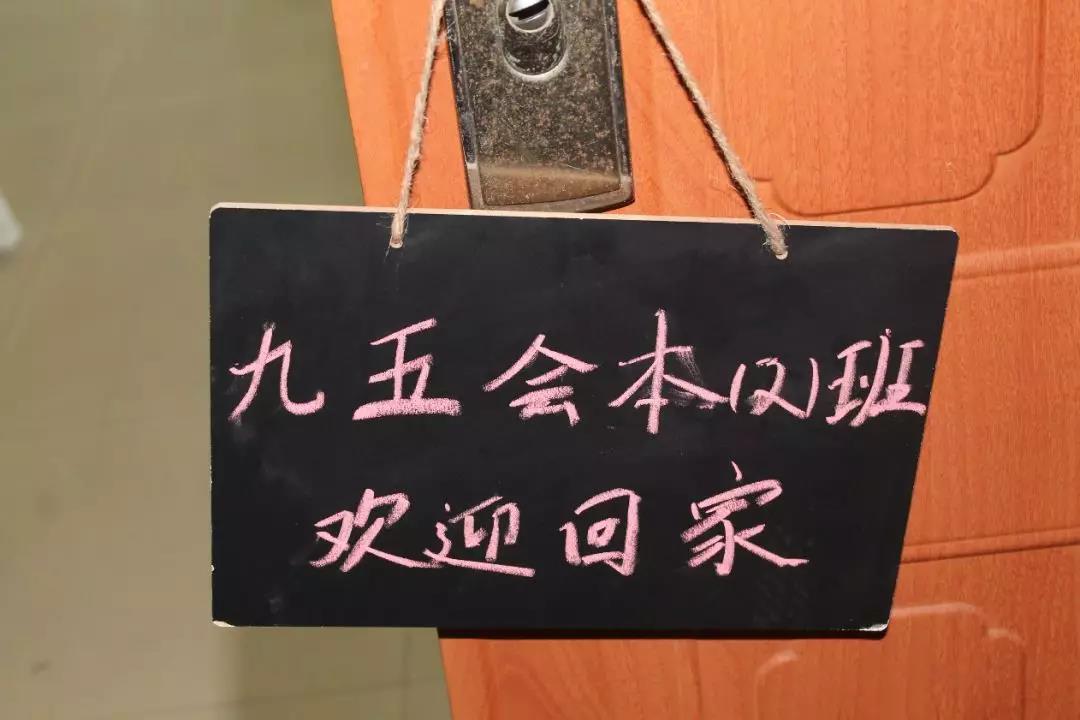 九五会本(2)班
欢迎回家